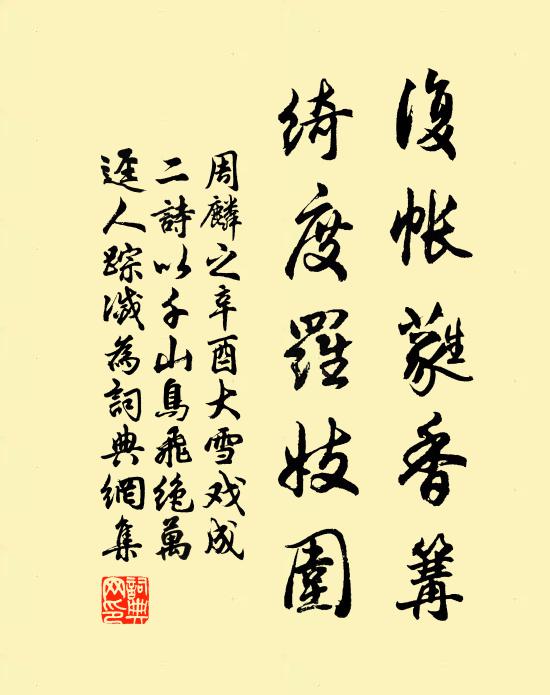 復帳蕤香篝
綺度羅妓圍
周麟之辛酉大雪戏成
二詩以千山鳥飛絶萬
逕人踪滅為詞典網集
詞典
网印